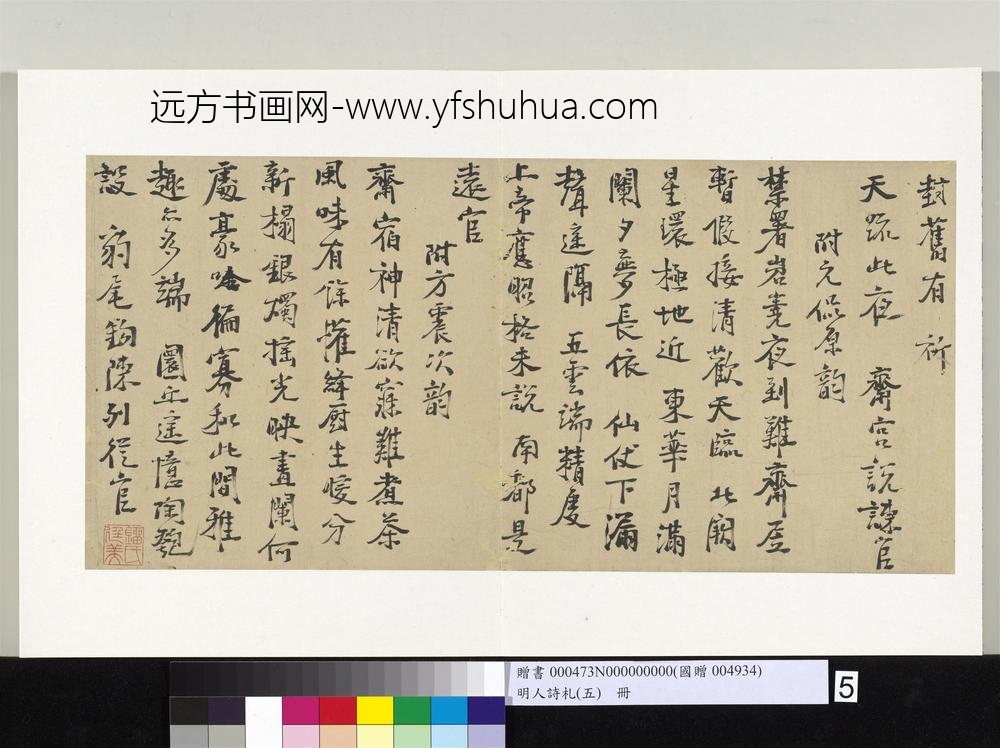 远方书画网-www.yfshuhua.com
封舊有 祈
天疏此夜 齋宮說諫官
附元侃原韵
禁署岧嶤夜到難齋居
暫假接清歡天臨北闕
星環極地近東華月滿
闌夕夢長依 仙仗下漏
聲遥隔 五雲端精虔
上帝應昭格未說 南都是
遠官
附方震次韵
齋宿神清欲寐難煮茶
風味有餘 絳厨生煖分
新榻銀燭摇光映畫闌何
處豪吟偏寡和此間雅
趣亦多端 圜丘遥憶陶匏
設 豹尾鈎陳列從官
贈書 000473N000000000(國贈 004934)
明人詩札(五) 冊
5